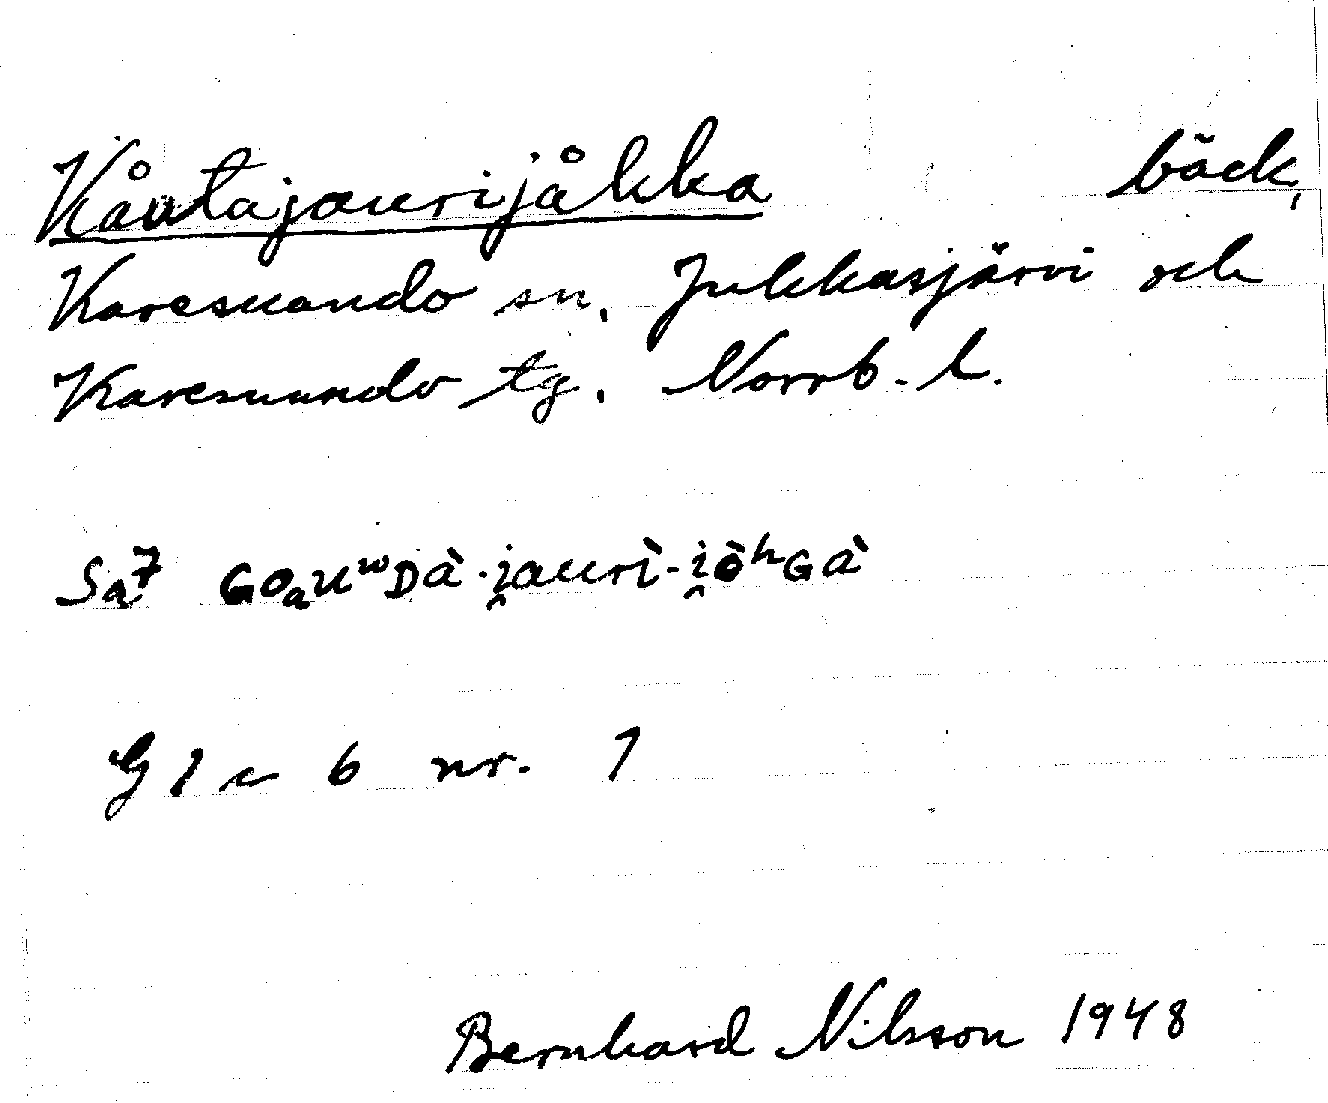 Kåutajaurijåkka bäck,
Karesuando sn. Jukkasjärvi och
Karesuando tg. Norrb. l.
Sa7 GOₐuʷDà-i̯auri-i̯òʰGà
G 1 c 6 nr. 1
Bernhard Nilsson 1948